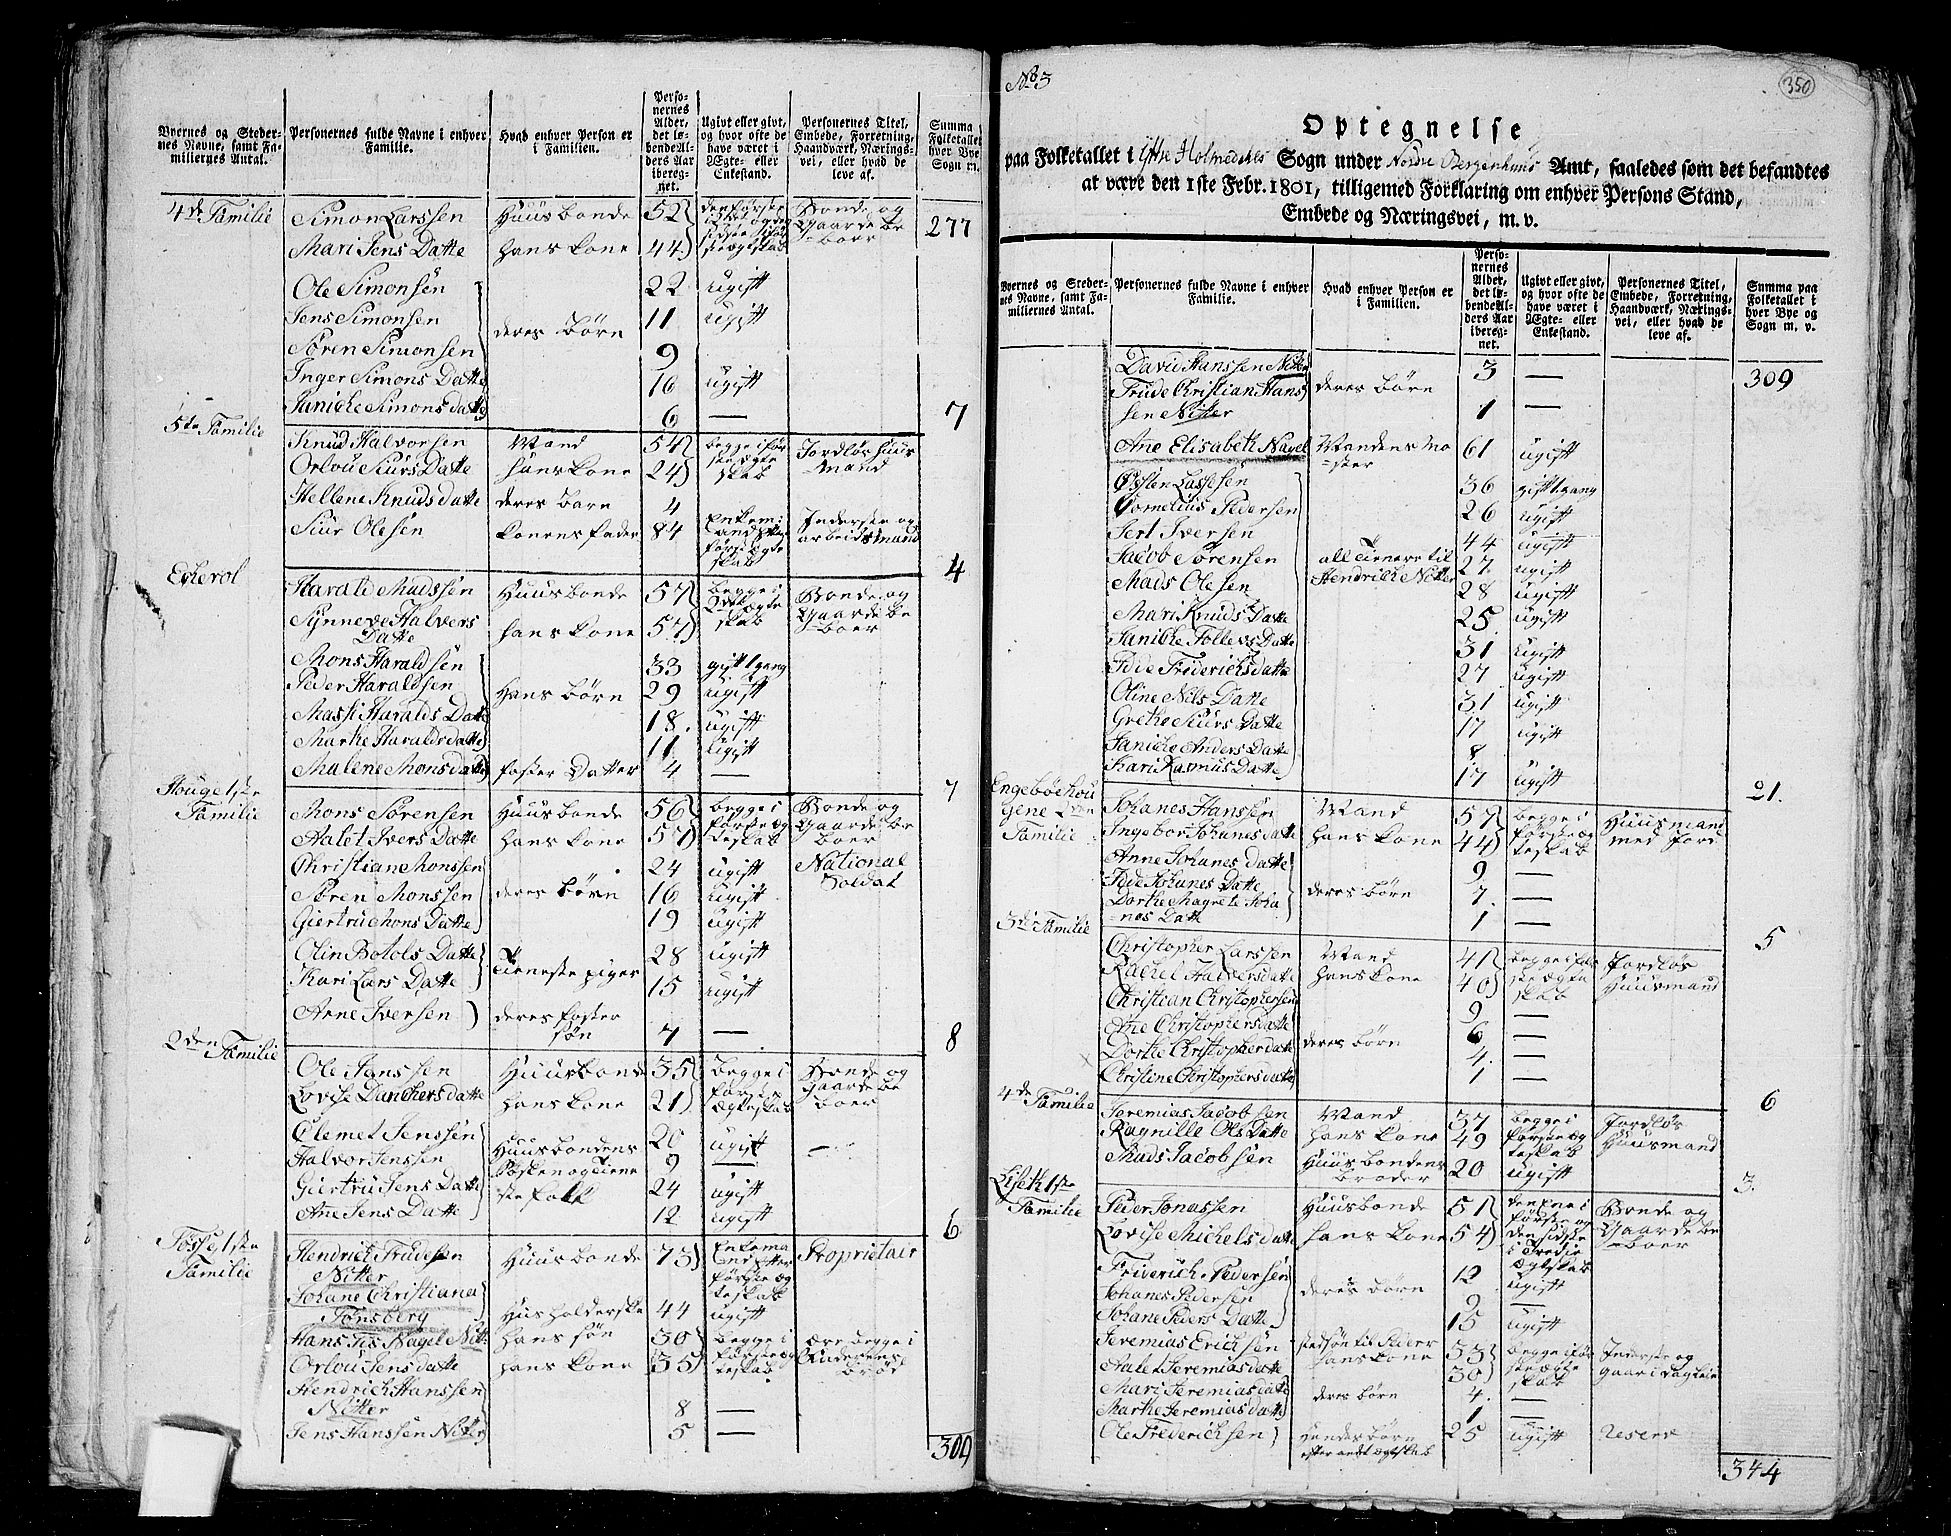 Byernes og Steder-
nes Navne, samt Fa-
miliernes Antal.
Personernes fulde Navne i enhver
Familie.
Hvad enhver Person er
i Familien.
Perso-
nernes
Alder,
det lø-
bende Al-
ders Aar
ibereg-
net.
Ugivt eller givt,
og hvor ofte de
have været i
Ægte- eller
Enkestand.
Personernes Titel,
Embede, Forretning,
Haandværk, Nærings-
vei, eller hvad de
leve af.
Summa
Folketallet
hver Bye
Sogn m.
4de Familie Simon Larssen Huusbonde 52 Bonde og Gaardebeboer 277
Mari Jens Datte hans kone 44
Ole Simonsen 22 ugift
Jens Simonsen deres børn 11 ugift
Søren Simonsen 9
Inger Simons Datte 16 ugift
Janiche Simonsdatte 6 — 7
5te Familie Knud Halvorsen Mand 54 begge i første ægteskab Jordløs Huusmand
Orlou Siurs Datte hans kone 24
Hellene Knudsdatte deres barn 4
Siur Olesen konens fader 84 Inderste og arbeidsmand 4
Ekerol Harald Madssen Huusbonde 57 begge i 2det ægteskab Bonde og Gaardebeboer
Synneve Halvers Datte hans kone 57
Mons Haraldsen 33 gift 1 gang
Peder Haraldsen hans børn 29 ugift
Massi Haralds Datte 18. ugift
Marthe Haraldsdatte 11 ugift
Malene Monsdatte foster Datter 4 — 7
Houge 1ste Familie Mons Sørensen Huusbonde 56 begge i første ægteskab Bonde og Gaardebeboer
Aalet Ivers Datte hans kone 57
Christian Monssen 24 ugift National Soldat
Søren Monssen deres børn 16 ugift
Giertru Mons Datte 19 ugift
Olin Botols Datte tieneste piger 28 ugift
Kari Lars Datte 15 ugift
Arne Iversen deres foster søn 7 — 8
2den Familie Ole Janssen Huusbonde 35 begge i første ægteskab Bonde og Gaardebeboer
Lovise Danchersdatte hans kone 21
Clemet Jenssen Huusbondens 20 ugift —
Halvor Jenssen Søsken og tiene 9 —
Giertru Jens Datte ste folk 24 ugift
Ane Jens Datte 12 ugift 6
Tosse 1ste Familie Hendrich Frudesen Nitter Huusbonde 73 Enkemand efter første ægteskab Proprietair
Johane Christiana Tønsberg Husholderske 44 ugift
Hans Tis Nagel Nitte hans søn 30 begge i første ægteskab
Orlou Jensdatte hans kone 35
Hendrich Hanssen Nitter 8 —
Jens Hanssen Nitter 5 —
309
No 3
350
Optegnelse
paa Folketallet i Yttre Holmedals Sogn under Nordre Bergenhuus Amt, saaledes som det befandtes
at være den 1ste Febr. 1801, tilligemed Forklaring om enhver Persons Stand,
Embede og Næringsvei, m. v.
Byernes og Steder-
nes Navne, samt Fa-
miliernes Antal.
Personernes fulde Navne i enhver
Familie.
Hvad enhver Person er
i Familien.
Perso-
nernes
Alder,
det lø-
bende Al-
ders Aar
ibereg-
net.
Ugivt eller givt,
og hvor ofte de
have været i
Ægte- eller
Enkestand.
Personernes Titel,
Embede, Forretning,
Haandværk, Nærings-
vei, eller hvad de
leve af.
Summa paa
Folketallet i
hver Bye og
Sogn m. v.
David Hanssen Nitter 3 — 309
Frude Christian Hanssen Nitter deres børn 1 —
Ane Elisabeth Nagel Mandens Moster 61 ugift
Østen Lassesen 36 gift 1 gang
Cornelius Pedersen 26 ugift
Gert Iversen 44 ugift
Jacob Sørensen all tienere til 27 ugift
Mads Olesen Hendrich Nitter 28 ugift
Mari Knuds Datte 25 ugift
Janiche Tollevs Datte 31 ugift
Idde Friderichsdatte 27 ugift
Oline Nils Datte 31 ugift
Grethe Siurs Datte 17 ugift
Janiche Anders Datte 8
Kari Rasmus Datte 17 ugift 21.
Engebøehougene 2den Familie Johanes Hanssen Mand 57 begge i første ægteskab Huusmand med Jord
Ingebor Johanesdatte hans kone 44
Anne Johanes Datte 9 —
Idde Johanes Datte deres børn 7 —
Dorthe Magrete Johanes Datte 1 — 5
3die Familie Christopher Larssen Mand 41 begge i første ægteskab Jordløs Huusmand
Rachel Halversdatte hans kone 40
Christian Christophersen 9 —
Ane Christophersdatte 6 —
Dorthe Christopherdatte deres børn 4 —
Christine Christophersdatte 1 — 6
4de Familie Jeremias Jacobsen Mand 37 begge i første ægteskab Jordløs Huusmand
Ragnille Ols Datte hans kone 49
Mads Jacobsen Huusbondens broder 20 ugift 3.
Liseth 1ste Familie Peder Jonassen Huusbonde 51 den Ene i første og den sidste i tredie ægteskab Bonde og Gaardebeboer
Lovise Michelsdatte hans kone 54
Friderich Pedersen 12 ugift
Johanes Pedersen deres børn 9 —
Johane Peders Datte 15 ugift
Jeremias Erichsen stedsøn til Peder 33 begge i første ægteskab
Aalet Jeremiasdatte hans kone 30
Mari Jeremiasdatte deres børn 4 —
Marthe Jeremiasdatte 1 —
Ole Frederichsen 25 ugift reserv
344